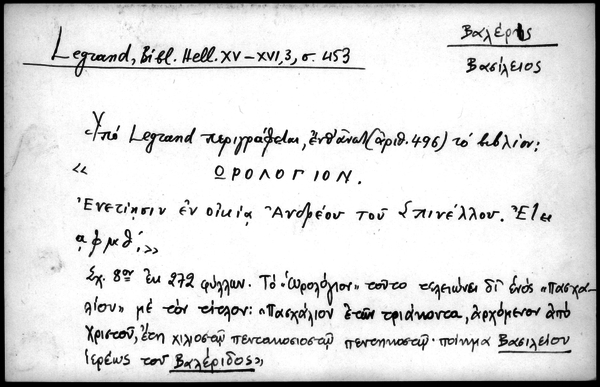 Legrand, Bibl. Hell. XV–XVI, 3, σ. 453
Βαλέρις
Βασίλειος
Ὑπό Legrand περιγράφεται, ἐνθ' ἀνωτ. (ἀριθ. 496) τό βιβλίον:
« ΩΡΟΛΟΓΙΟΝ.
Ἐνετίησιν ἐν οἰκίᾳ Ἀνδρέου τοῦ Σπινέλλου. Ἔτει
αφμθʹ.»
Σχ. 8ον ἐκ 272 φύλλων. Τό «Ὡρολόγιον» τοῦτο τελειώνει δι' ἑνός «Πασχα-
λίου» μέ τόν τίτλον: «Πασχάλιον ἐτῶν τριάκοντα, ἀρχόμενον ἀπό
Χριστοῦ, ἔτη χιλιοστῷ πεντακοσιοστῷ πεντηκοστῷ· ποίημα Βασιλείου
ἱερέως τοῦ Βαλέριδος»